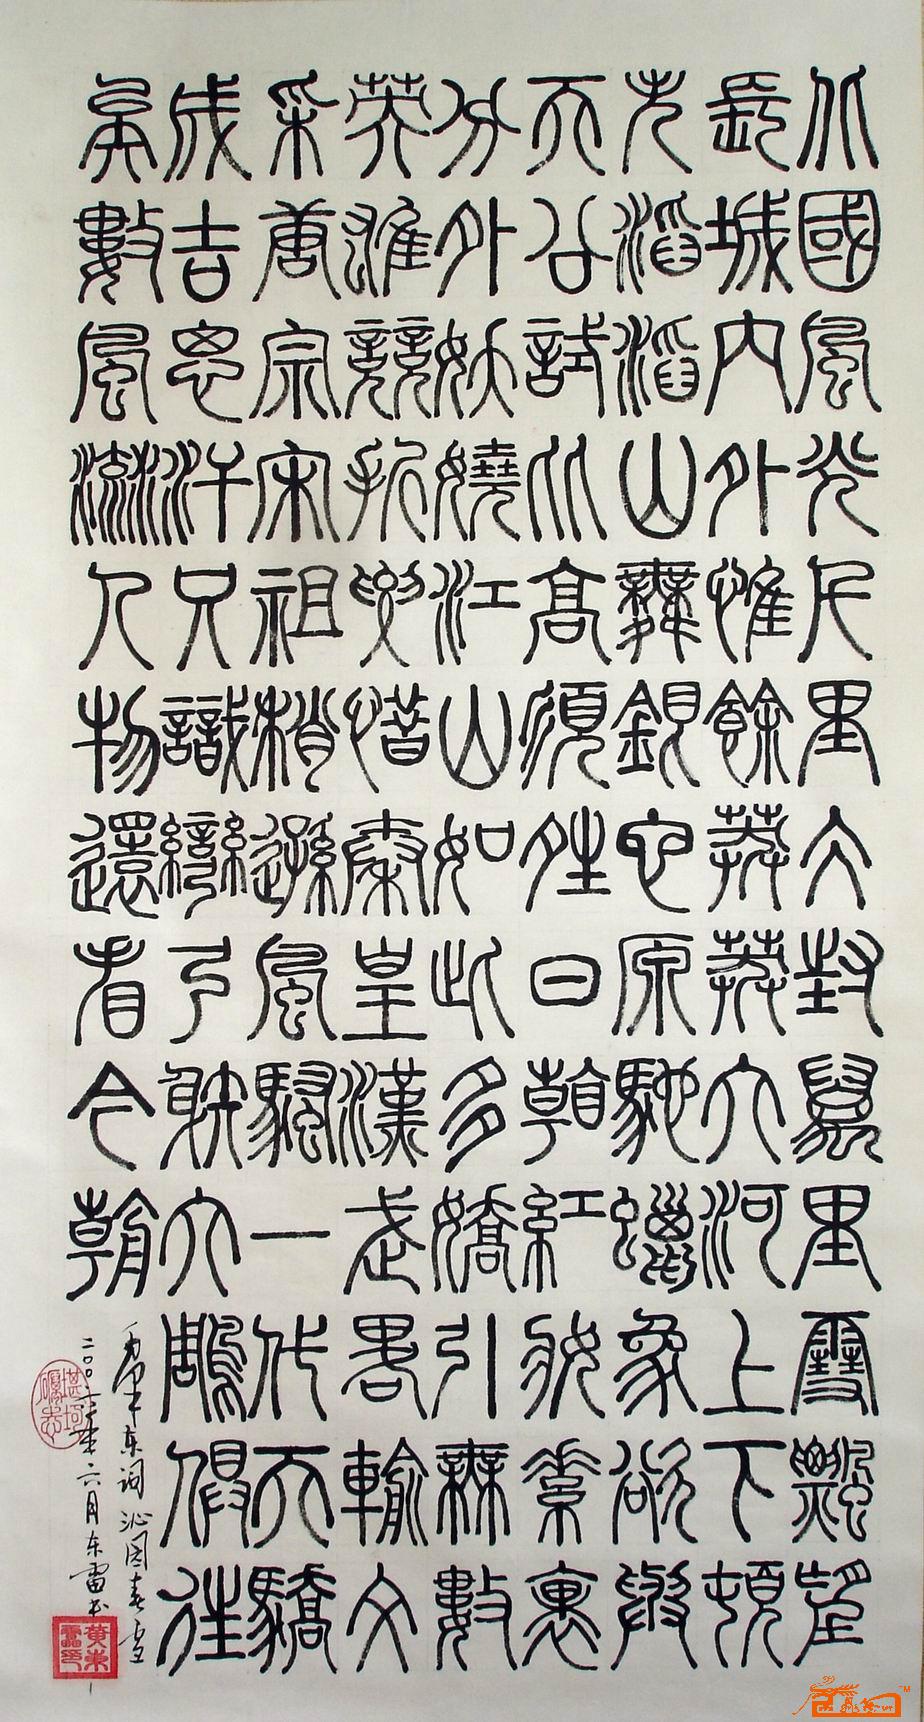 北國風光千里冰封萬里雪飄望
長城內外惟餘莽莽大河上下頓
失滔滔山舞銀蛇原馳蠟象欲與
天公試比高須晴日看紅妝素裹
分外妖嬈江山如此多嬌引無數
英雄競折腰惜秦皇漢武略輸文
采唐宗宋祖稍遜風騷一代天驕
成吉思汗只識彎弓射大鵰俱往
矣數風流人物還看今朝
毛泽东词沁园春雪
二〇〇六年六月东雷书
黄東雷印